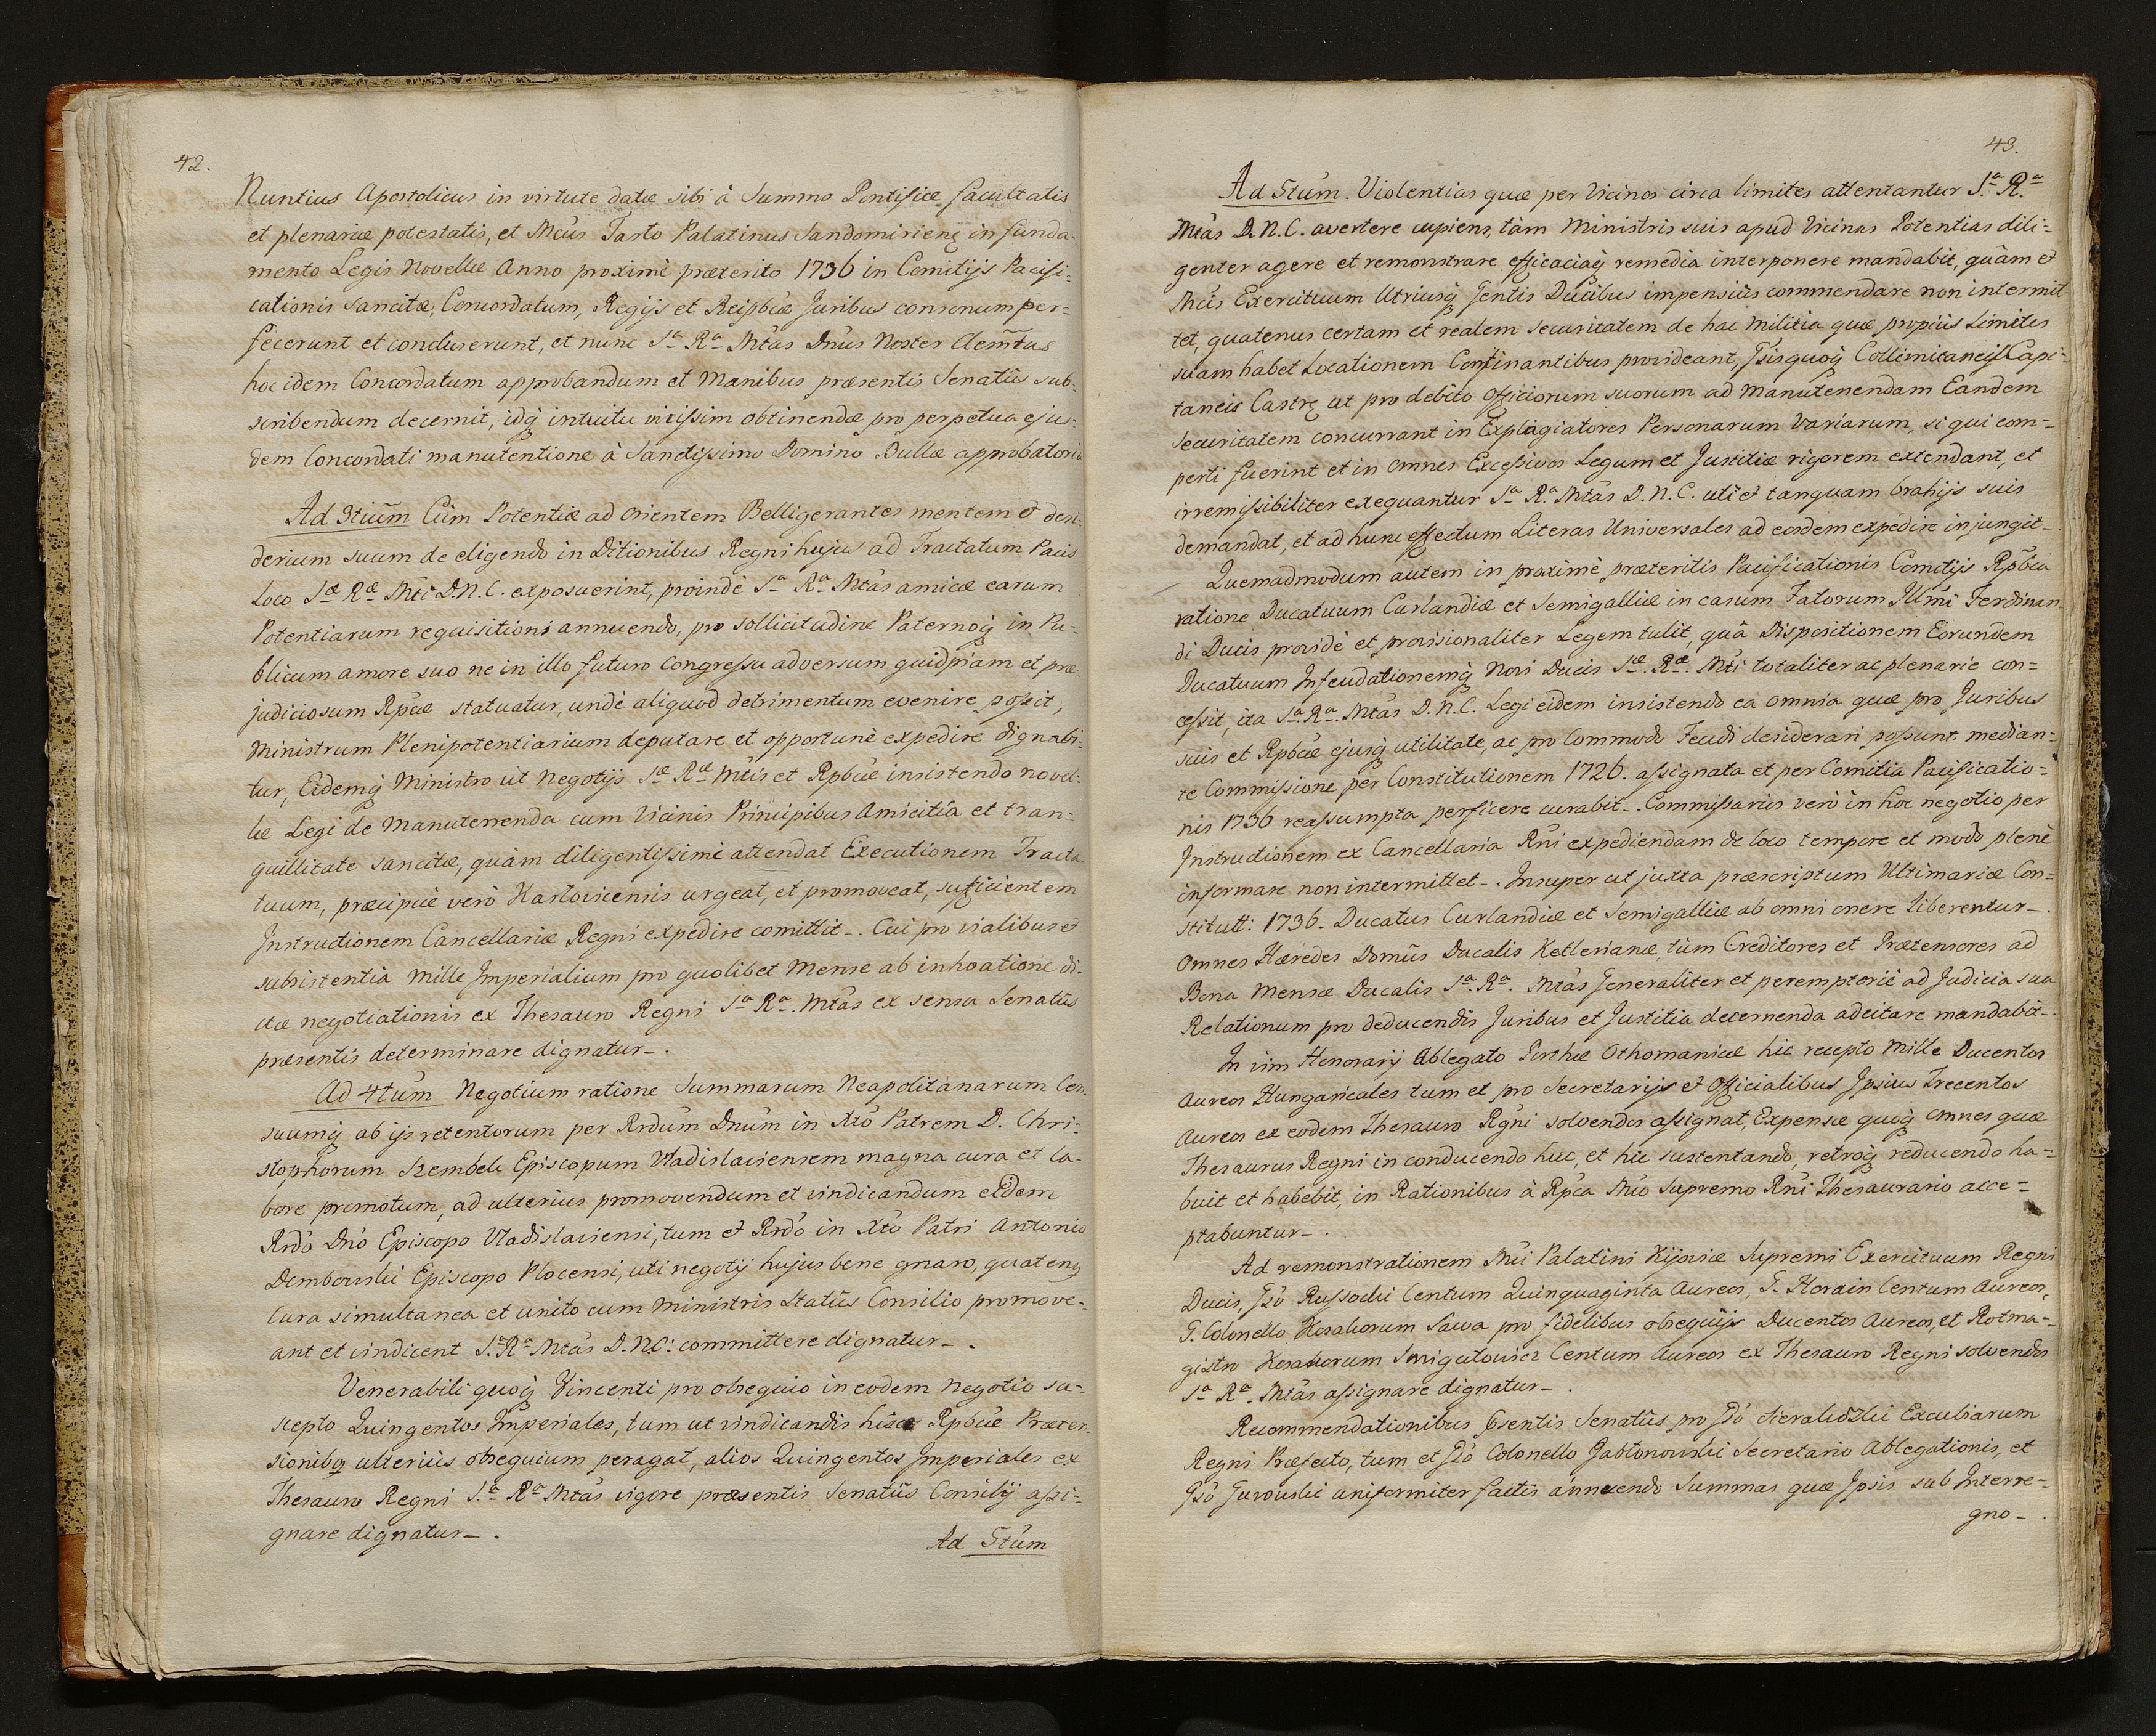 42.
Nuntius Apostolicus in virtute datæ sibi à Summo Pontifice facultatis
et plenariæ potestatis, et Mcus Tarło Palatinus Sandomiriens in funda-
mento Legis Novellæ Anno proximè præterito 1736 in Comitijs Pacifi-
cationis sancitæ, Concordatum, Regijs et Reipbcæ Juribus consonum per-
fecerunt et concluserunt, et nunc S.ª R.ª Mtas Dnus Noster Clemtus
hoc idem Concordatum approbandum et Manibus præsentis Senatûs sub-
scribendum decernit, idq intuitu vicissim obtinendæ pro perpetua ejus-
dem Concordati manutentione à Sanctissimo Domino Bullæ approbatoriæ
Ad 3tium Cùm Potentiæ ad Orientem Belligerantes mentem et desi-
derium suum de eligendo in Ditionibus Regni hujus ad Tractatum Pacis
loco Sæ Ræ Mti D.N.C. exposuerint, proindè S.ª R.ª Mtas amicæ earum
Potentiarum requisitioni annuendo, pro sollicitudine Paternoq in Pu-
blicum amore suo ne in illo futuro Congressu adversum quidpiam et præ-
judiciosum Rpcæ statuatur, undè aliquod detrimentum evenire possit,
Ministrum Plenipotentiarium deputare et opportunè expedire dignabi-
tur, Eidemq Ministro ut Negotijs Sæ Ræ Mtis et Rpbcæ insistendo novel-
læ Legi de Manutenenda cum Vicinis Principibus Amicitia et tran-
quillitate sancitæ, quàm diligentissimè attendat Executionem Tracta-
tuum, præcipuè verò Karlovicensis urgeat, et promoveat, sufficientem
Instructionem Cancellariæ Regni expedire comittit-. Cui pro vialibus et
subsistentia Mille Imperialium pro quolibet Mense ab inhoatione di-
ctæ negotiationis ex Thesauro Regni S.ª R.ª Mtas ex sensu Senatûs
præsentis determinare dignatur-.
Ad 4tum Negotium ratione Summarum Neapolitanarum Cen-
suumq ab ijs retentorum per Rndum Dnum in Xto Patrem D. Chri-
stophorum Szembek Episcopum Vladislaviensem magna cura et la-
bore promotum, ad ulterius promovendum et vindicandum eidem
Rndo Dno Episcopo Vladislaviensi, tum et Rndo in Xto Patri Antonio
Dembowski Episcopo Plocensi, uti negotij hujus bene gnaro, quatenq
Cura simultanea et unito cum Ministris Statûs Consilio promove-
ant et vindicent S.ª R.ª Mtas D.N.C: committere dignatur-.
Venerabili quoq Vincenti pro obsequio in eodem Negotio su-
scepto Quingentos Imperiales, tum ut vindicandis hisce Rpbcæ Præten-
sionibq ulteriùs obsequium peragat, alios Quingentos Imperiales ex
Thesauro Regni S.ª R.ª Mtas vigore præsentis Senatûs Consilij assi-
gnare dignatur-.
Ad 5tum
43.
Ad 5tum. Violentias quæ per Vicinos circa limites attentantur S.ª R.ª
Mtas D.N.C. avertere cupiens, tàm Ministris suis apud Vicinas Potentias dili-
genter agere et remonstrare efficaciaq remedia interponere mandabit, quàm et
Mcis Exercituum Utriusq Gentis Ducibus impensiùs commendare non intermit-
tet, quatenus certam et realem securitatem de hac Militia quæ propiùs Limites
suam habet Locationem Confinantibus provideant, Gsisquoq Collimitaneis Capi-
taneis Castr ut pro debito Officiorum suorum ad manutenendam Eandem
securitatem concurrant in Explagiatores Personarum Variarum, si qui com-
perti fuerint et in omnes Excessivos Legum et Justitiæ rigorem extendant, et
irremissibiliter exequantur S.ª R.ª Mtas D.N.C. uti et tanquam brahijs suis
demandat, et ad hunc effectum Literas Universales ad eosdem expedire injungit-
Quemadmodum autem in proximè præteritis Pacificationis Comitijs Rpbca
ratione Ducatuum Curlandiæ et Semigalliæ in casum Fatorum Illmi Ferdinan-
di Ducis providè et provisionaliter Legem tulit, quâ Dispositionem Eorundem
Ducatuum Infeudationemq Novi Ducis Sæ. Ræ. Mti totaliter ac plenarie con-
cessit, ita S.ª R.ª Mtas D.N.C. Legi eidem insistendo ea omnia quæ pro Juribus
suis et Rpbcæ ejusq utilitate, ac pro Commodo Feudi desiderari possunt median-
te Commissione per Constitutionem 1726. assignata et per Comitia Pacificatio-
nis 1736 reassumpta perficere curabit-. Commissarios verò in hoc negotio per
Instructionem ex Cancellaria Rni expediendam de loco tempore et modo plenè
informare non intermittet-. Insuper ut juxta præscriptum Ultimariæ Con-
stitutt: 1736. Ducatus Curlandiæ et Semigalliæ ab omni onere liberentur-.
Omnes Hæredes Domûs Ducalis Ketlerianæ, tùm Creditores et Prætensores ad
Bona Mensæ Ducalis S.ª R.ª. Mtas Generaliter et peremptoriè ad Judicia sua
Relationum pro deducendis Juribus et Justitia decernenda adcitare mandabit-.
In vim Honorarij Ablegato Porthæ Othomanicæ hic recepto Mille Ducentos
Aureos Hungaricales tum et pro Secretarijs et Officialibus Ipsius Trecentos
Aureos ex eodem Thesauro Rgni solvendos assignat, Expensæ quoq omnes quæ
Thesaurus Regni in conducendo huc, et hic sustentando, retroq reducendo ha-
buit et habebit, in Rationibus à Rpca Mco Supremo Rni Thesaurario acce-
ptabuntur-.
Ad remonstrationem Mci Palatini Kijoviæ Supremi Exercituum Regni
Ducis, Gso Russocki Centum Quinquaginta Aureos, G. Horain Centum Aureos,
G. Colonello Kosakorum Sawa pro fidelibus obsequijs Ducentos Aureos, et Rotma-
gistro Kosakorum Smigutowicz Centum Aureos ex Thesauro Regni solvendos
S.ª R.ª. Mtas assignare dignatur-.
Recommendationibus psentis Senatûs pro Gso Sierakodzki Excubiarum
Regni Præfecto, tum et Gso Colonello Jabłonowski Secretario Ablegationis, et
Gso Gurowski uniformiter factis annuendo Summas quæ Ipsis sub Interre-
gno-.